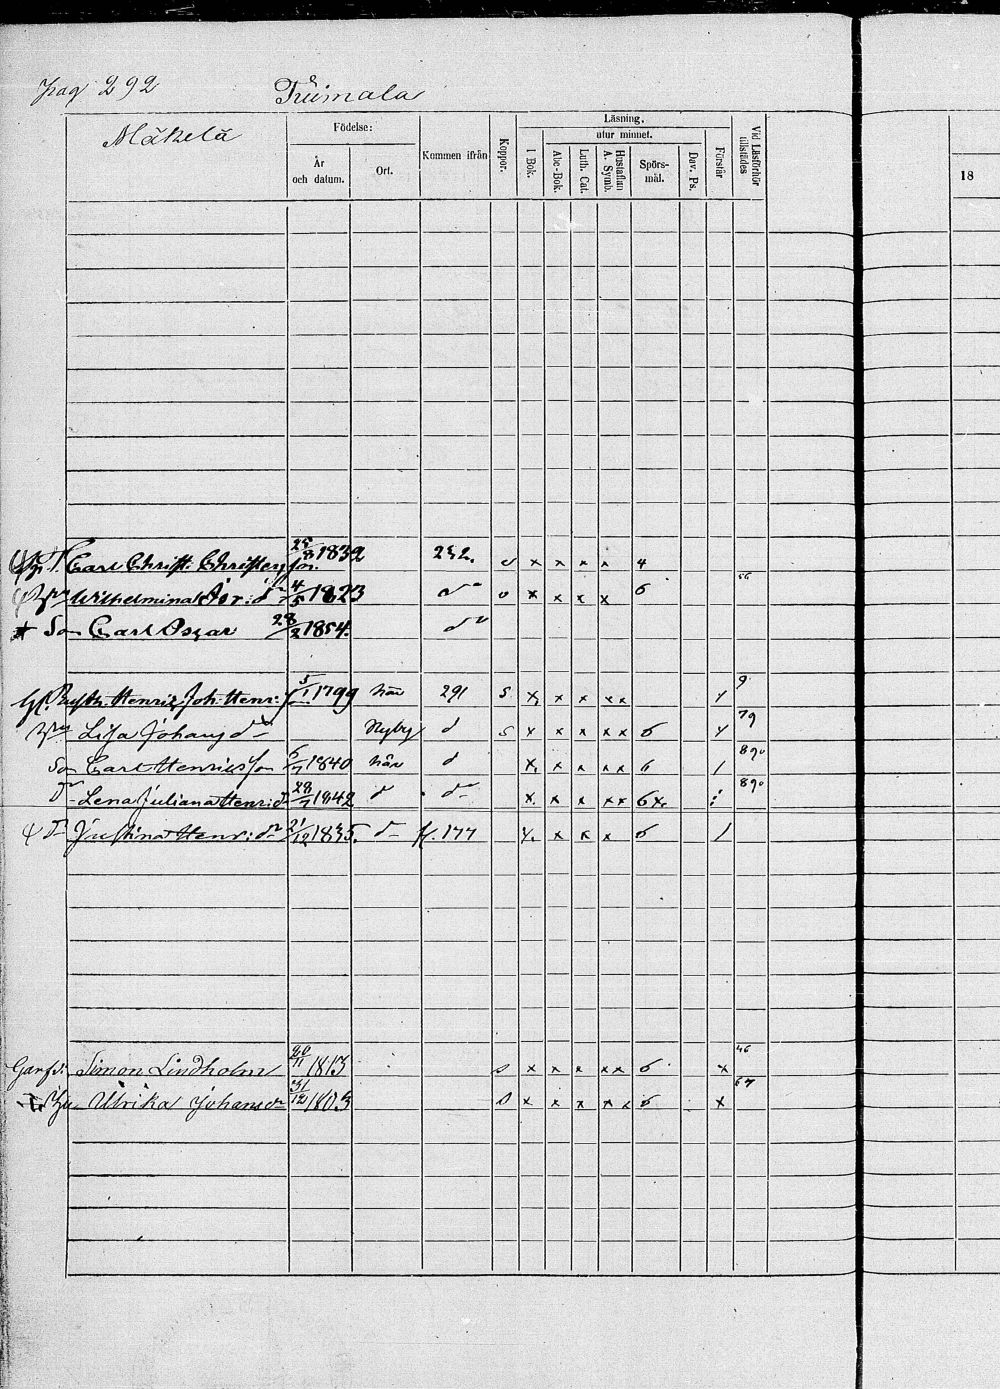 Pag 292 Tuimala
Mäkelä
Födelse:
År och datum.
Ort.
Kommen ifrån
Koppor.
Läsning.
utur minnet.
I Bok.
Abc-Bok.
Luth. Cat.
Hustaflan A. Symb.
Spörs-mål.
Dav. Ps.
Förstår
Vid Läsförhör tillstädes
18
Carl Christ. Christersson. 25/8 1832 232. v x x x x 4
Wilhelmina d:r 4/5 1823 do v x x x x 6 56
Son Carl Oscar 28/2 1854. do
Henric Joh. Henr: son 5/1 1799 här 291 s x x x x x 9
Lisa Johansdr Nyby d s x x x x x 6 79
Son Carl Henricsson 6/7 1840 här d x x x x x 6 / 890
Dr Lena Juliana Henr:dr 28/7 1842 d do x x x x x 6x. 890
Dr Justina Henr:dr 21/12 1835. do fr. 177 x x x x 6 /
Simon Lindholm 20/11 1813 s x x x x x 6 x 46
Ulrika Johansdr 31/12 1803 s x x x x x 6 x 67